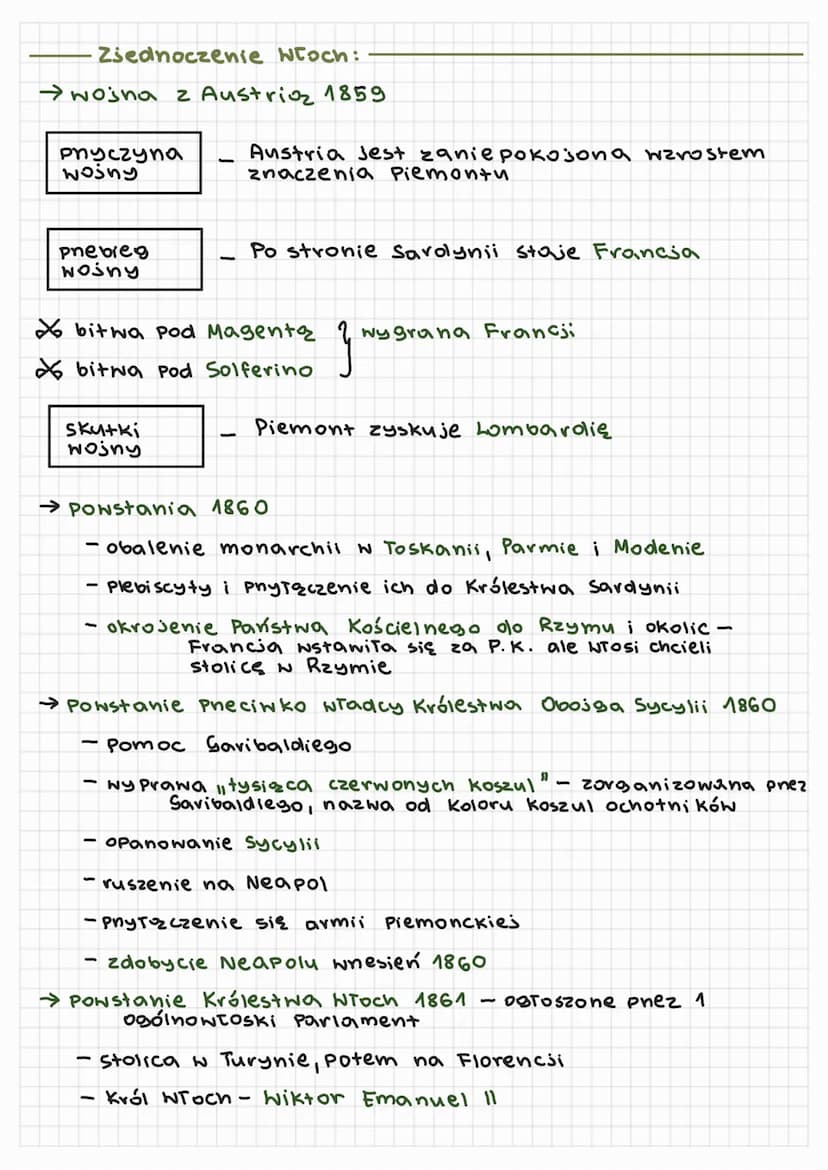 Zjednoczenie Włoch:
→ wojna z Austrią 1859
przyczyna
wojny
– Austria jest zaniepokojona wzrostem
znaczenia Piemontu
przebieg
wojny
– Po stronie Sardynii staje Francja
bitwa pod Magentą } wygrana Francji
bitwa pod Solferino
skutki
wojny
– Piemont zyskuje Lombardię
→ Powstania 1860
- obalenie monarchii w Toskanii, Parmie i Modenie
- Plebiscyty i przyłączenie ich do Królestwa Sardynii
- okrojenie Państwa Kościelnego do Rzymu i okolic –
Francja wstawiła się za P.K. ale Włosi chcieli
stolicę w Rzymie
→ Powstanie przeciwko władcy Królestwa Obojga Sycylii 1860
- Pomoc Garibaldiego
- wyprawa „tysiąca czerwonych koszul" – zorganizowana przez
Garibaldiego, nazwa od koloru koszul ochotników
- opanowanie Sycylii
- ruszenie na Neapol
- przyłączenie się armii piemonckiej
- zdobycie Neapolu wrzesień 1860
→ Powstanie Królestwa Włoch 1861 – ogłoszone przez 1
ogólnowłoski Parlament
- stolica w Turynie, potem na Florencji
- Król Włoch – Wiktor Emanuel II